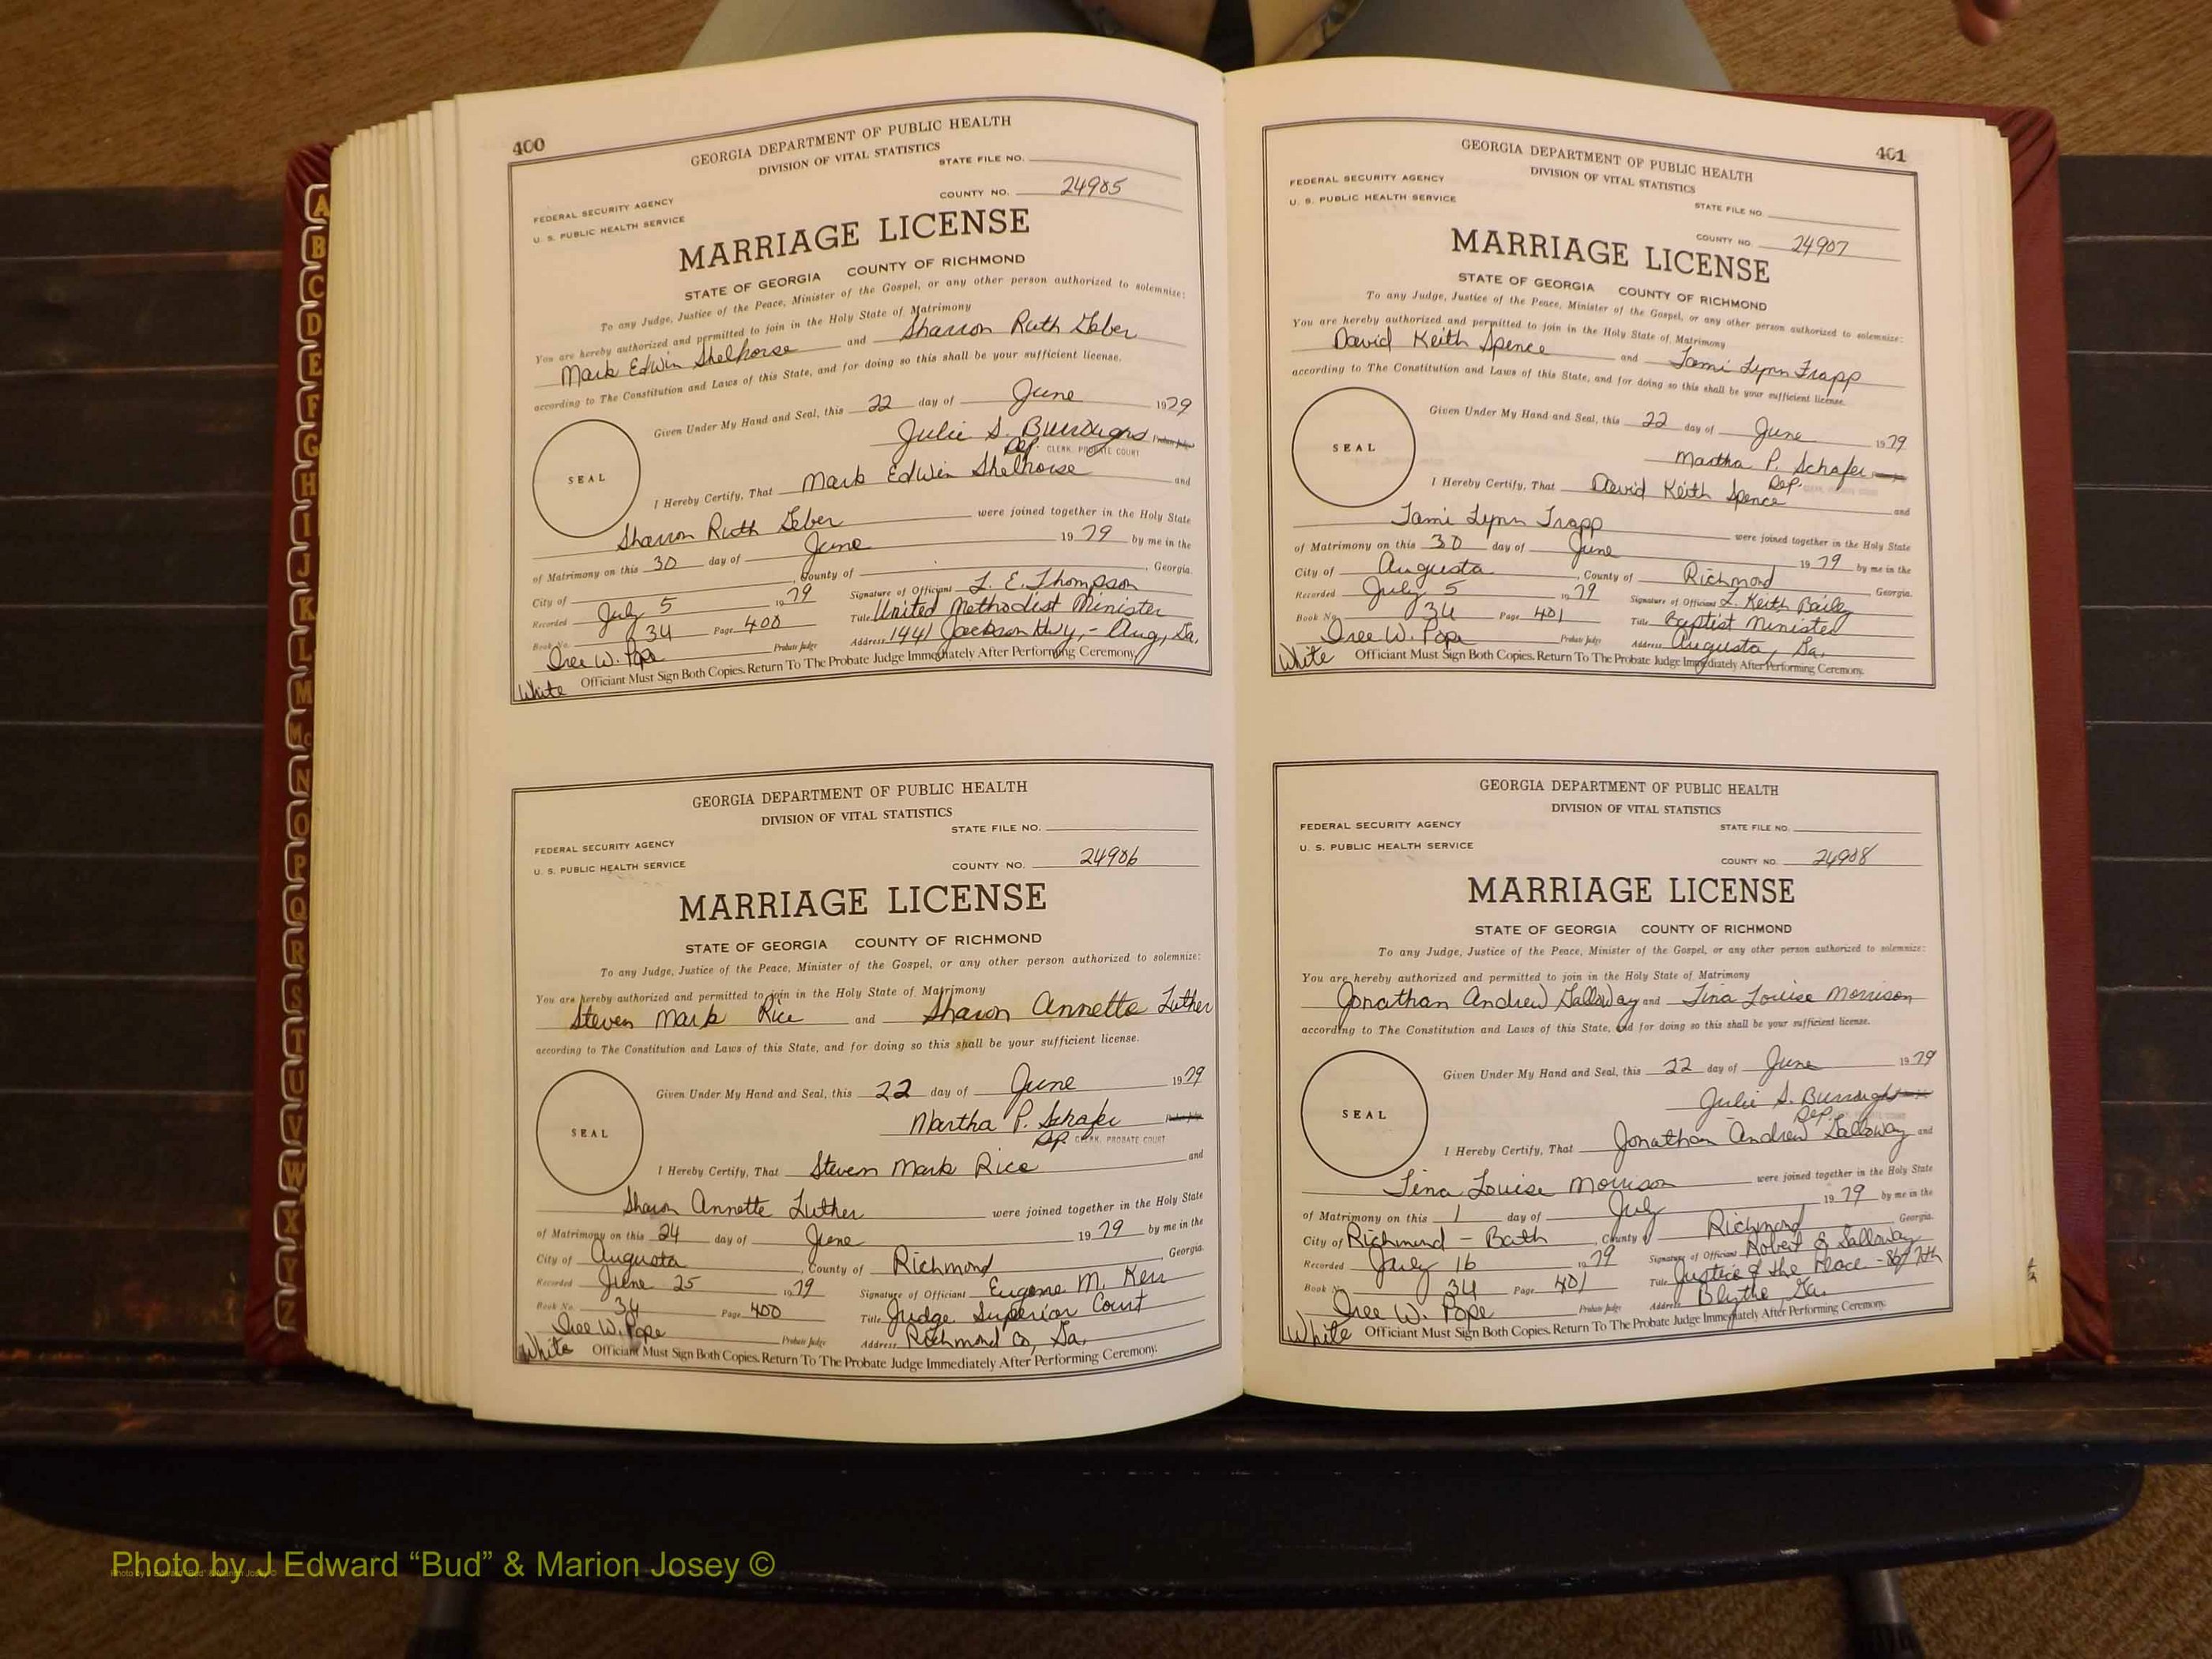 400
GEORGIA DEPARTMENT OF PUBLIC HEALTH
DIVISION OF VITAL STATISTICS
STATE FILE NO.
FEDERAL SECURITY AGENCY
U. S. PUBLIC HEALTH SERVICE
COUNTY NO. 24905
MARRIAGE LICENSE
STATE OF GEORGIA COUNTY OF RICHMOND
To any Judge, Justice of the Peace, Minister of the Gospel, or any other person authorized to solemnize:
You are hereby authorized and permitted to join in the Holy State of Matrimony
Mark Edwin Shelhorse and Sharron Ruth Geber
according to The Constitution and Laws of this State, and for doing so this shall be your sufficient license.
Given Under My Hand and Seal, this 22 day of June 1979
Julie S. Burroughs Probate Judge
Dep. CLERK, PROBATE COURT
SEAL
I Hereby Certify, That Mark Edwin Shelhorse and
Sharron Ruth Geber were joined together in the Holy State
of Matrimony on this 30 day of June 1979 by me in the
City of , County of , Georgia.
Recorded July 5 1979 Signature of Officiant L. E. Thompson
Book No. 34 Page 400 Title United Methodist Minister
Iree W. Pope Probate Judge Address 1441 Jackson Hwy, - Aug, Ga.
White Officiant Must Sign Both Copies. Return To The Probate Judge Immediately After Performing Ceremony.
GEORGIA DEPARTMENT OF PUBLIC HEALTH
DIVISION OF VITAL STATISTICS
STATE FILE NO.
FEDERAL SECURITY AGENCY
U. S. PUBLIC HEALTH SERVICE
COUNTY NO. 24906
MARRIAGE LICENSE
STATE OF GEORGIA COUNTY OF RICHMOND
To any Judge, Justice of the Peace, Minister of the Gospel, or any other person authorized to solemnize:
You are hereby authorized and permitted to join in the Holy State of Matrimony
Steven Mark Rice and Sharon Annette Luther
according to The Constitution and Laws of this State, and for doing so this shall be your sufficient license.
Given Under My Hand and Seal, this 22 day of June 1979
Martha P. Schafer Probate Judge
Dep. CLERK, PROBATE COURT
SEAL
I Hereby Certify, That Steven Mark Rice and
Sharon Annette Luther were joined together in the Holy State
of Matrimony on this 24 day of June 1979 by me in the
City of Augusta , County of Richmond , Georgia.
Recorded June 25 1979 Signature of Officiant Eugene M. Kerr
Book No. 34 Page 400 Title Judge Superior Court
Iree W. Pope Probate Judge Address Richmond Co, Ga.
White Officiant Must Sign Both Copies. Return To The Probate Judge Immediately After Performing Ceremony.
401
GEORGIA DEPARTMENT OF PUBLIC HEALTH
DIVISION OF VITAL STATISTICS
FEDERAL SECURITY AGENCY
U. S. PUBLIC HEALTH SERVICE
STATE FILE NO.
COUNTY NO. 24907
MARRIAGE LICENSE
STATE OF GEORGIA COUNTY OF RICHMOND
To any Judge, Justice of the Peace, Minister of the Gospel, or any other person authorized to solemnize:
You are hereby authorized and permitted to join in the Holy State of Matrimony
David Keith Spence and Tami Lynn Trapp
according to The Constitution and Laws of this State, and for doing so this shall be your sufficient license.
Given Under My Hand and Seal, this 22 day of June 1979
Martha P. Schafer
Dep. CLERK, PROBATE COURT
SEAL
I Hereby Certify, That David Keith Spence and
Tami Lynn Trapp were joined together in the Holy State
of Matrimony on this 30 day of June 1979 by me in the
City of Augusta , County of Richmond , Georgia.
Recorded July 5 1979 Signature of Officiant L. Keith Bailey
Book No. 34 Page 401 Title Baptist Minister
Iree W. Pope Probate Judge Address Augusta, Ga.
White Officiant Must Sign Both Copies. Return To The Probate Judge Immediately After Performing Ceremony.
GEORGIA DEPARTMENT OF PUBLIC HEALTH
DIVISION OF VITAL STATISTICS
FEDERAL SECURITY AGENCY
STATE FILE NO.
U. S. PUBLIC HEALTH SERVICE
COUNTY NO. 24908
MARRIAGE LICENSE
STATE OF GEORGIA COUNTY OF RICHMOND
To any Judge, Justice of the Peace, Minister of the Gospel, or any other person authorized to solemnize:
You are hereby authorized and permitted to join in the Holy State of Matrimony
Jonathan Andrew Galloway and Tina Louise Morrison
according to The Constitution and Laws of this State, and for doing so this shall be your sufficient license.
Given Under My Hand and Seal, this 22 day of June 1979
Julie S. Burroughs
Dep.
SEAL
I Hereby Certify, That Jonathan Andrew Galloway and
Tina Louise Morrison were joined together in the Holy State
of Matrimony on this 1 day of July 1979 by me in the
City of Richmond - Bath , County of Richmond , Georgia.
Recorded July 16 1979 Signature of Officiant Robert E Galloway
Book No. 34 Page 401 Title Justice of the Peace -
Iree W. Pope Probate Judge Address Blythe Ga.
White Officiant Must Sign Both Copies. Return To The Probate Judge Immediately After Performing Ceremony.
A
B
C
D
E
F
G
H
I
J
K
L
M
Mc
N
O
P
Q
R
S
T
U
V
W
X
Y
Z
Photo by J Edward “Bud” & Marion Josey ©